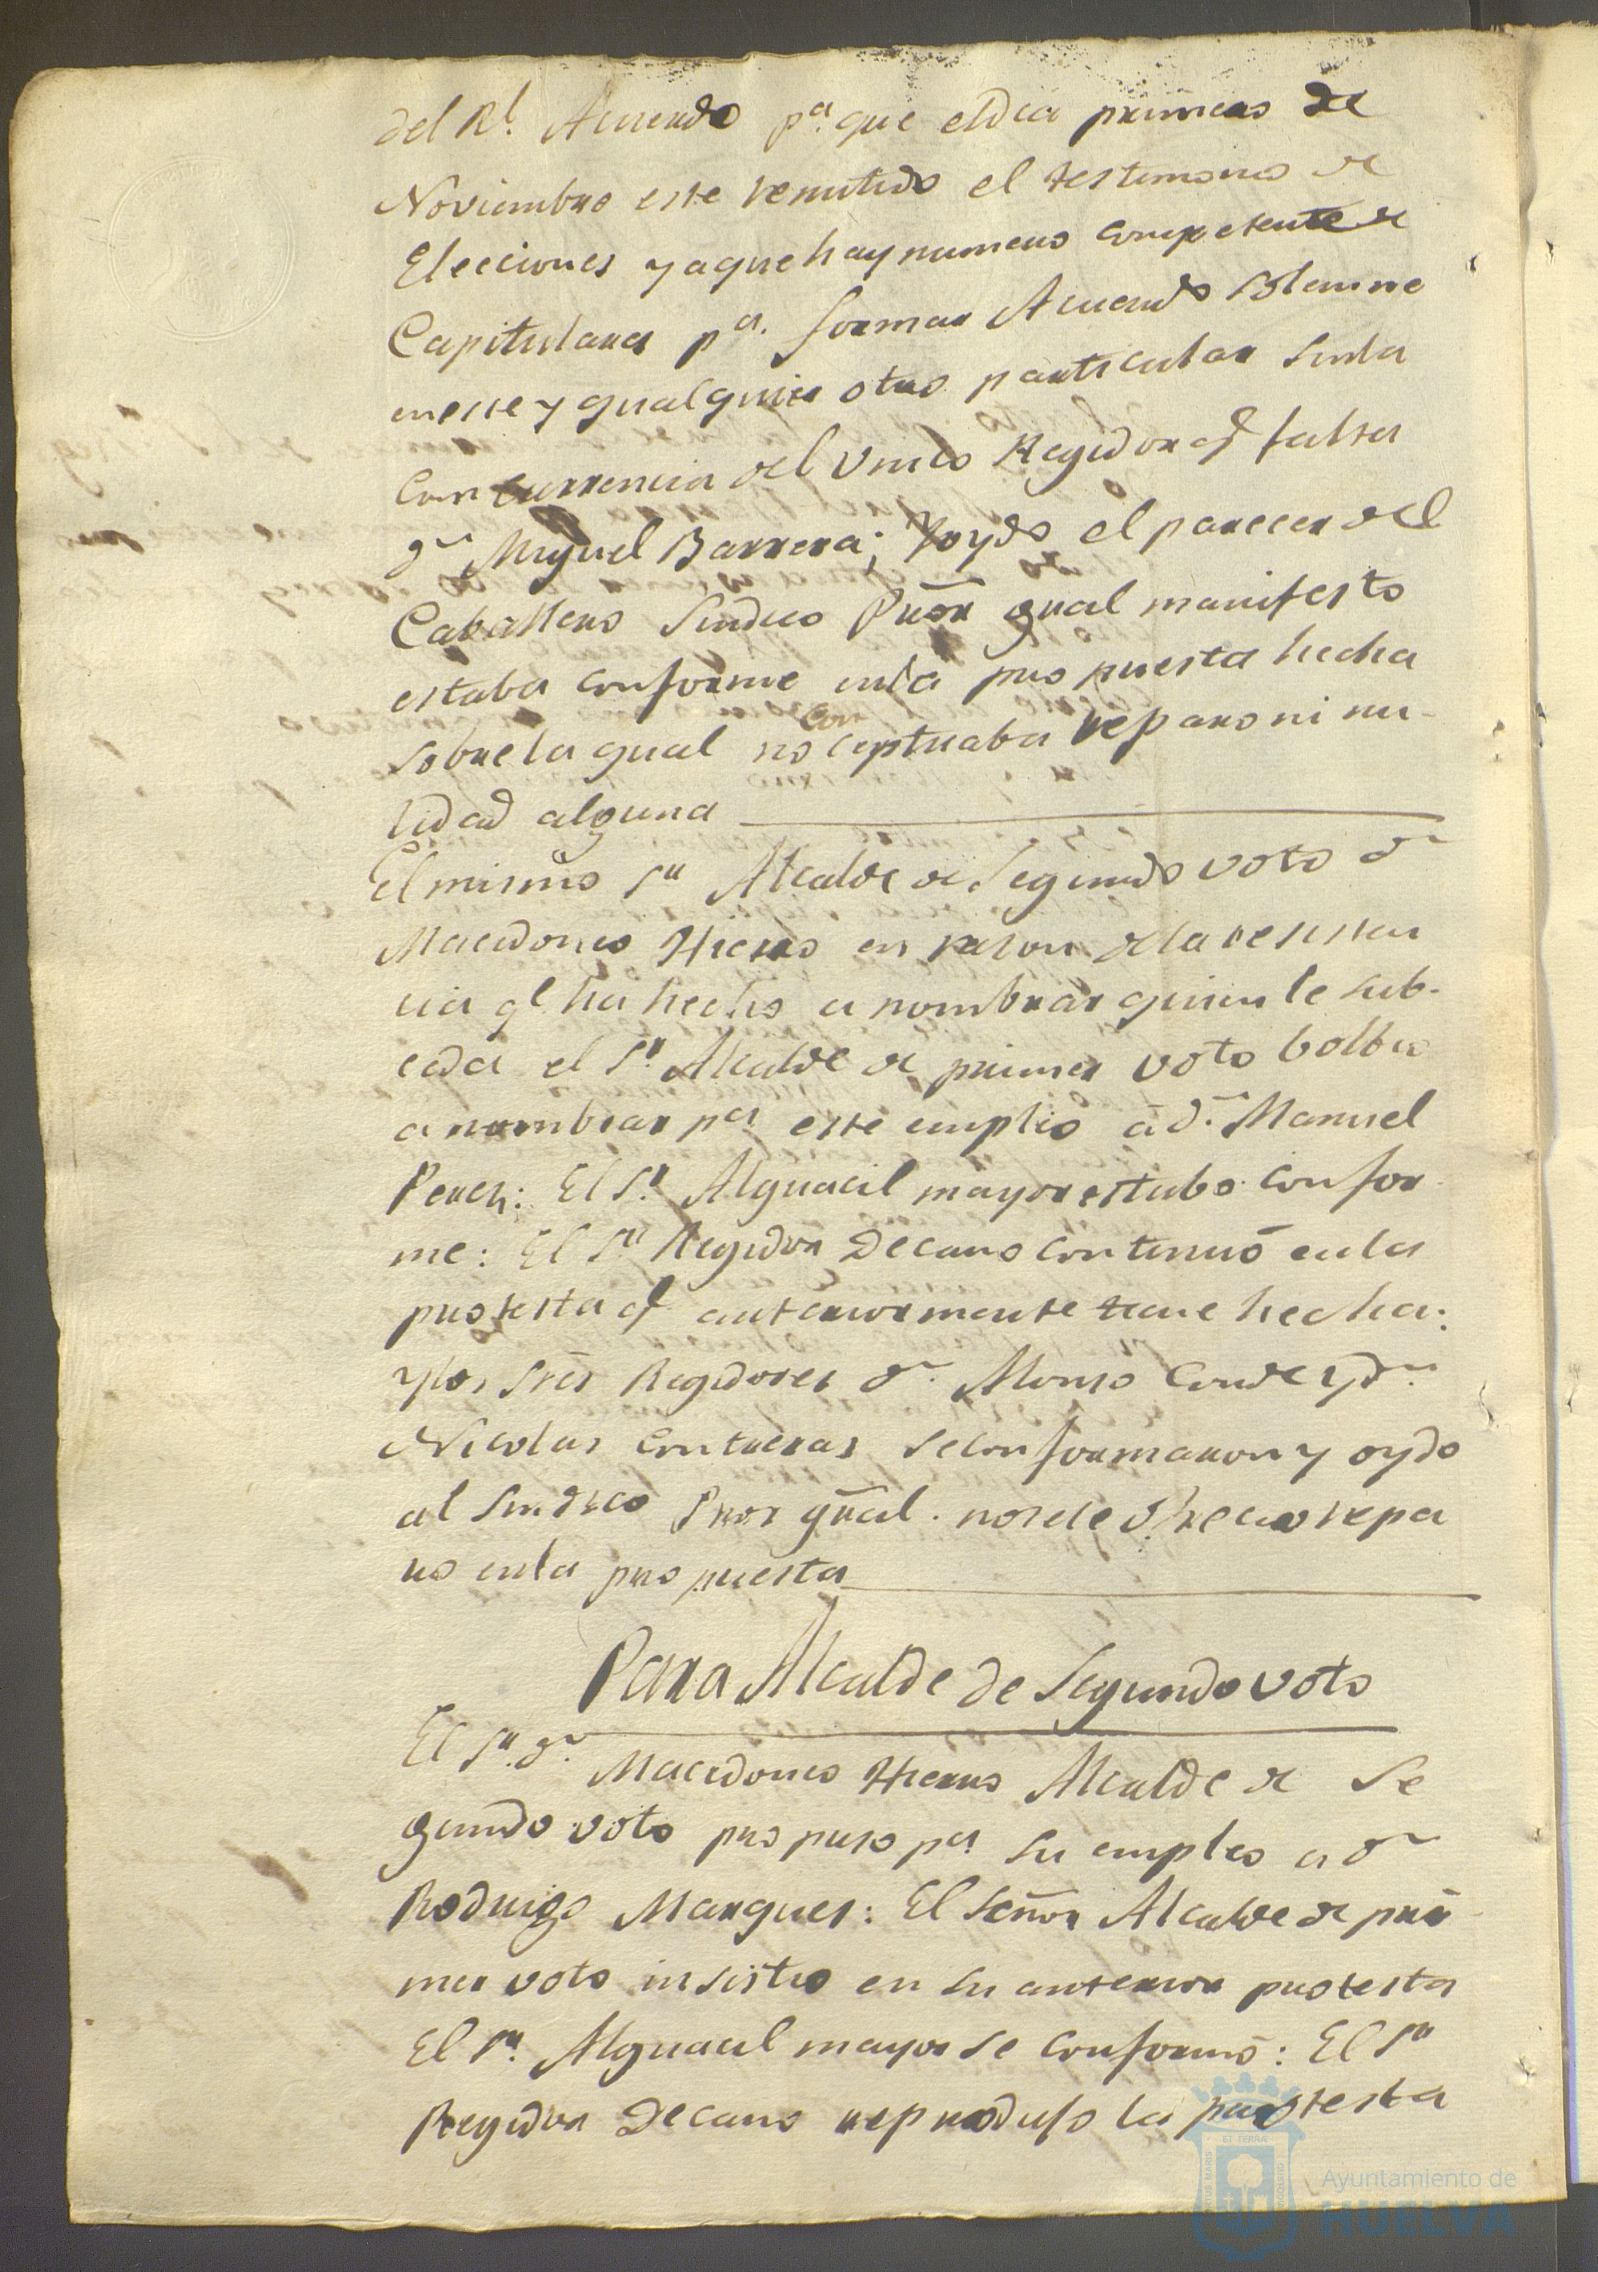 del Rl. Acuerdo pa. que eldia primero de
Noviembre este remitido el testimonio de
Elecciones y aque hay numero competente de
Capitulares pa. formar Acuerdo solemne
mente y qualquier otro particular sinla
concurrencia del Unico Regidor q.e falta
dn Miguel Barrera; Yoydo el parecer del
Caballero Sindico Pror gral manifesto
estaba conforme enla pro puesta hecha
sobre la qual no conceptuaba reparo ni nu-
lidad alguna
El mismo Sr Alcalde de Segundo voto dn
Macedonio Hierro en rason dela resisten
cia qe. ha hecho a nombrar quien le sub-
ceda el Sr. Alcalde de primer voto bolbio
a nombrar pa. este empleo à dn. Manuel
Perez: El Sr. Alguacil mayor estubo confor
me: El Sr. Regidor Decano continuó enla
protesta qe anteriormente tiene hecha:
Ylos Sres Regidores dn. Alonso Conde y dn.
Nicolas Contreras seconformaron y oydo
al Sindico Pror gral. nosele ofrecio repa
ro enla pro puesta
Para Alcalde de Segundo voto
El Sr. dn. Macedonio Hierro Alcalde de Se
gundo voto pro puso pa. su empleo a dn
Rodrigo Marques: El Señor Alcalde de pri
mer voto insistio en su anterior protesta
El Sr. Alguacil mayor se conformó: El Sr
Regidor Decano reprodujo la protesta
Ayuntamiento de
HUELVA